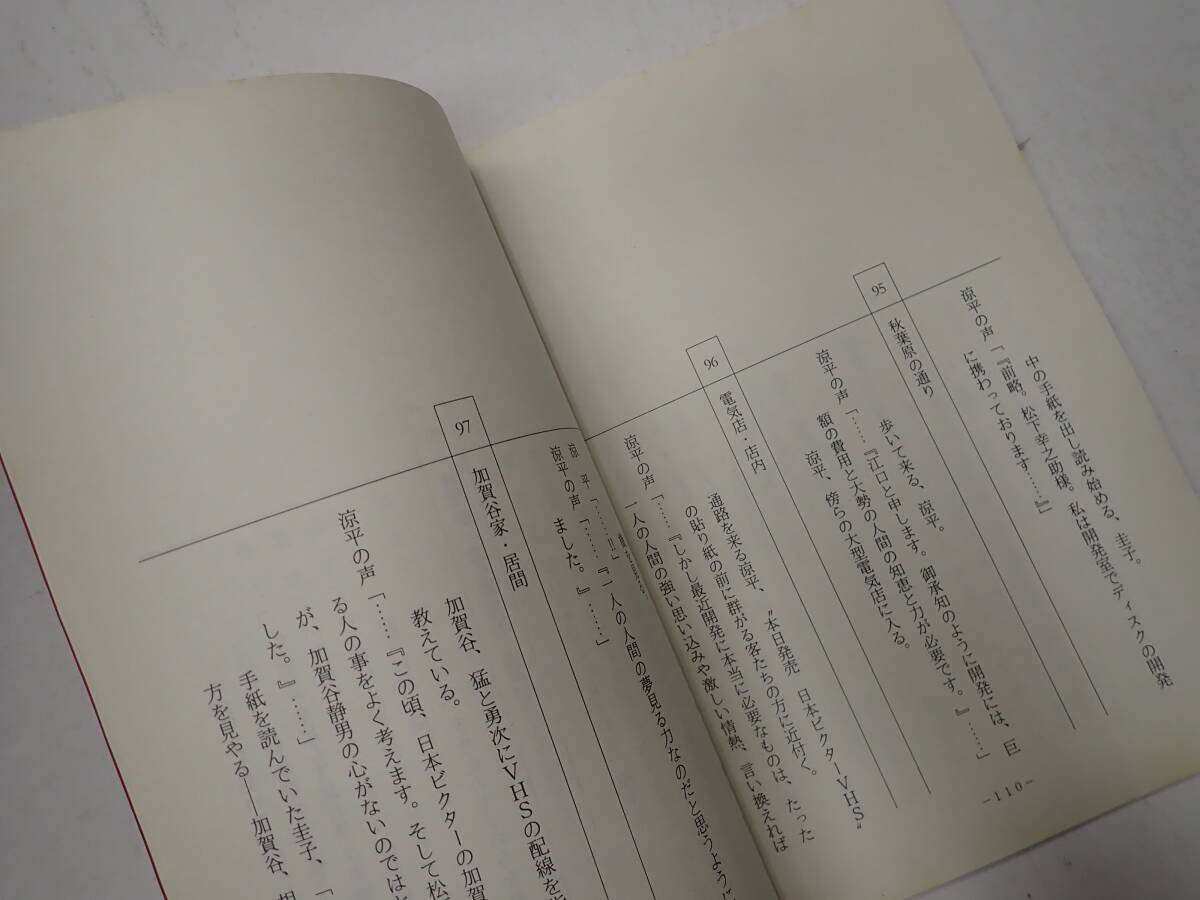 中の手紙を出し読み始める、圭子。
涼平の声「『前略。松下幸之助様。私は開発室でディスクの開発
に携わっております……』
95
秋葉原の通り
歩いて来る、涼平。
涼平の声「……『江口と申します。御承知のように開発には、巨
額の費用と大勢の人間の知恵と力が必要です。』……」
涼平、傍らの大型電気店に入る。
96
電気店・店内
通路を来る涼平、〝本日発売　日本ビクターVHS〟
の貼り紙の前に群がる客たちの方に近付く。
涼平の声「……『しかし最近開発に本当に必要なものは、たった
一人の人間の強い思い込みや激しい情熱、言い換えれば
－110－
涼　平「……!!」
涼平の声「……『一人の人間の夢見る力なのだと思うように
ました。』……」
97
加賀谷家・居間
加賀谷、猛と勇次にVHSの配線を
教えている。
涼平の声「……『この頃、日本ビクターの加賀
る人の事をよく考えます。そして松
が、加賀谷静男の心がないのでは
した。』……」
手紙を読んでいた圭子、「
方を見やる――加賀谷、